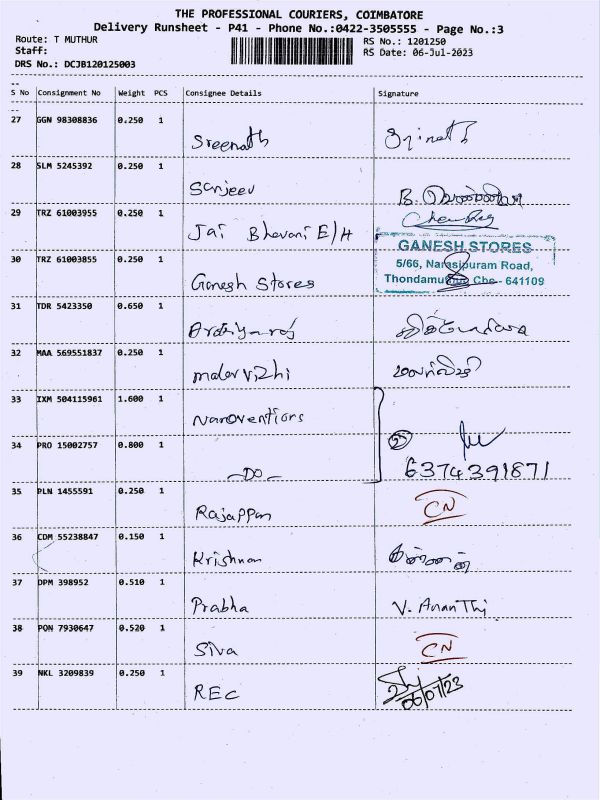 THE PROFESSIONAL COURIERS, COIMBATORE
Delivery Runsheet - P41 - Phone No.:0422-3505555 - Page No.:3
Route: T MUTHUR
RS No.: 1201250
Staff:
RS Date: 06-Jul-2023
DRS No.: DCJB120125003
S No Consignment No Weight PCS Consignee Details Signature
27 GGN 98308836 0.250 1 Sreenath Srinath
28 SLM 5245392 0.250 1 Sanjeev B.
29 TRZ 61003955 0.250 1 Jai Bhavani E/H
30 TRZ 61003855 0.250 1 Ganesh Stores
GANESH STORES
5/66, Narasipuram Road,
Thondamuthur Cbe - 641109
31 TDR 5423350 0.650 1
32 MAA 569551837 0.250 1 malarvizhi மலர்விழி
33 IXM 504115961 1.600 1 Naroventions
34 PRO 15002757 0.800 1 -DO- 6374391871
35 PLN 1455591 0.250 1 Rajappan CN
36 CDM 55238847 0.150 1 Krishnan
37 DPM 398952 0.510 1 Prabha V. Ananthi
38 PON 7930647 0.520 1 Siva CN
39 NKL 3209839 0.250 1 REC 06/07/23